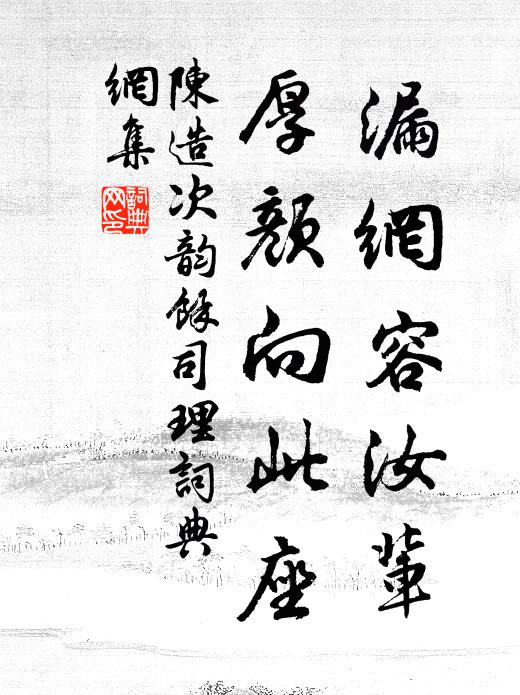 漏網容汝輩
厚顏向此座
陳造次韵餘司理詞典
網集
詞典
网印